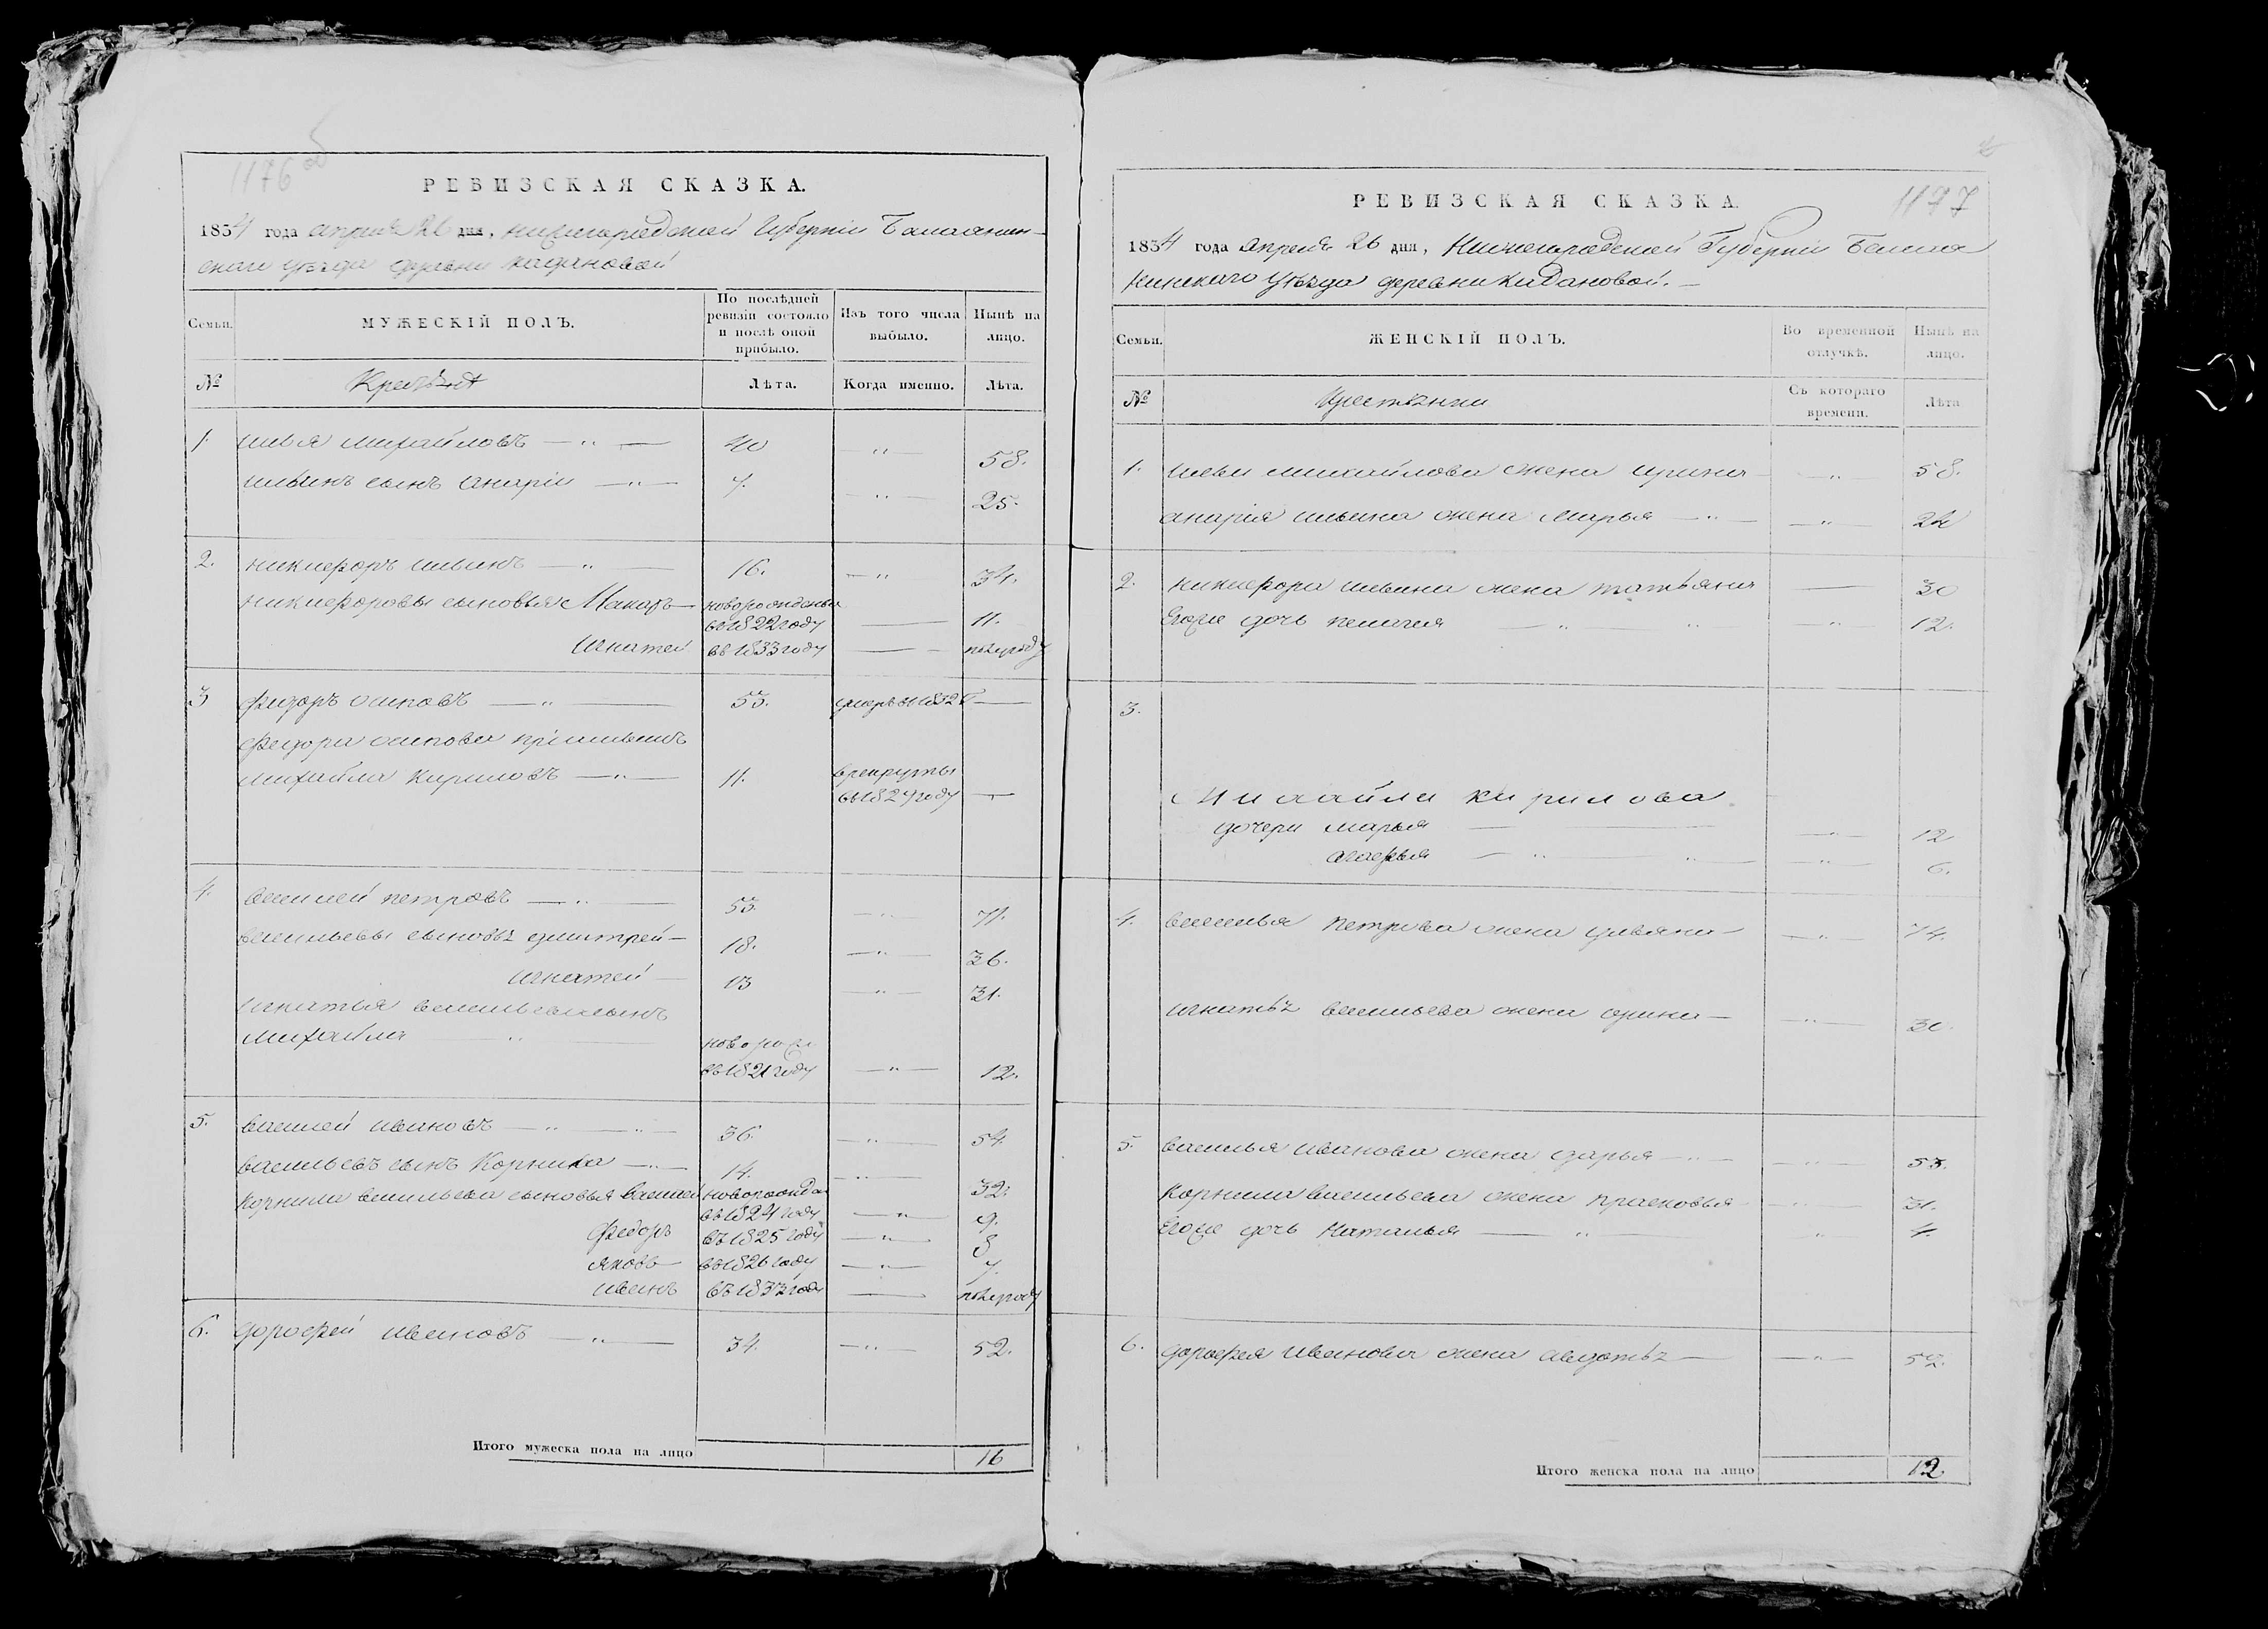 1176 об
РЕВИЗСКАЯ СКАЗКА.
1834 года апреля 26 дня, Нижегородской Губернiи Балахнин-
скаго уѣзда деревни Кадановой
Семьи.
МУЖЕСКIЙ ПОЛЪ.
По послѣдней ревизiи состояло и послѣ оной прибыло.
Изъ того числа выбыло.
Нынѣ на лицо.
№
Лѣта.
Когда именно.
Лѣта.
1. илья михайловъ — " — 40 — " — 58.
ильинъ сынъ анарiи — " — 7. — " — 25.
2. никифоръ ильинъ — " — 16. — " — 34.
никифоровы сыновья Макаръ — новорожденъи
въ 1822 году — 11.
Игнатей въ 1833 году — полугоду
3 фидоръ осиповъ — " — 53. умеръ въ 1832 —
федора осипова прiимышъ
михайла кириловъ — " — 11. в рекруты
въ 1829 году —
4. василей петровъ — " — 53. — " — 71.
васильевы сыновь дмитрей — 18. — " — 36.
игнатей — 13 — " — 31.
игнатья васильева сынъ
михайла — " — новорож
въ 1821 году — " — 12.
5. василей ивановъ — " — " — 36. — " — 54
васильевъ сынъ Корнила — " — 14. — " — 32.
корнила васильева сыновья василей новорожден
въ 1824 году — " — 9.
федоръ въ 1825 году — " — 8
яковъ въ 1826 году — " — 7.
иванъ въ 1833 году — полугоду
6. дорофей ивановъ — " — 34. — " — 52.
Итого мужеска пола на лицо 16
1177
РЕВИЗСКАЯ СКАЗКА.
1834 года апреля 26 дня, Нижегородской Губернiи Балах
нинскаго уѣзда деревни Кадановой. —
Семьи.
ЖЕНСКIЙ ПОЛЪ.
Во временной отлучкѣ.
Нынѣ на лицо.
№
Съ котораго времени.
Лѣта
1. ильи михайлова жена ирина — " — 58.
анарiя ильина жена Марья — " — — " — 22
2. никифора ильина жена татьяна — 30
Егоже дочь пелагея — " — " — " — 12.
3.
Михайла кирилова
дочери марья — — " — 12
— " — " — " — 6.
4. василья Петрова жена ульяна — — " — 74.
игнатъ васильева жена орина — — " — 30.
5. василья иванова жена дарья — " — — " — 53.
корнила васильева жена прасковья — " — 31.
Егоже дочь наталья — " — " 4.
6. дорофея иванова жена авдотъ — — " — 52.
Итого женска пола на лицо 12.